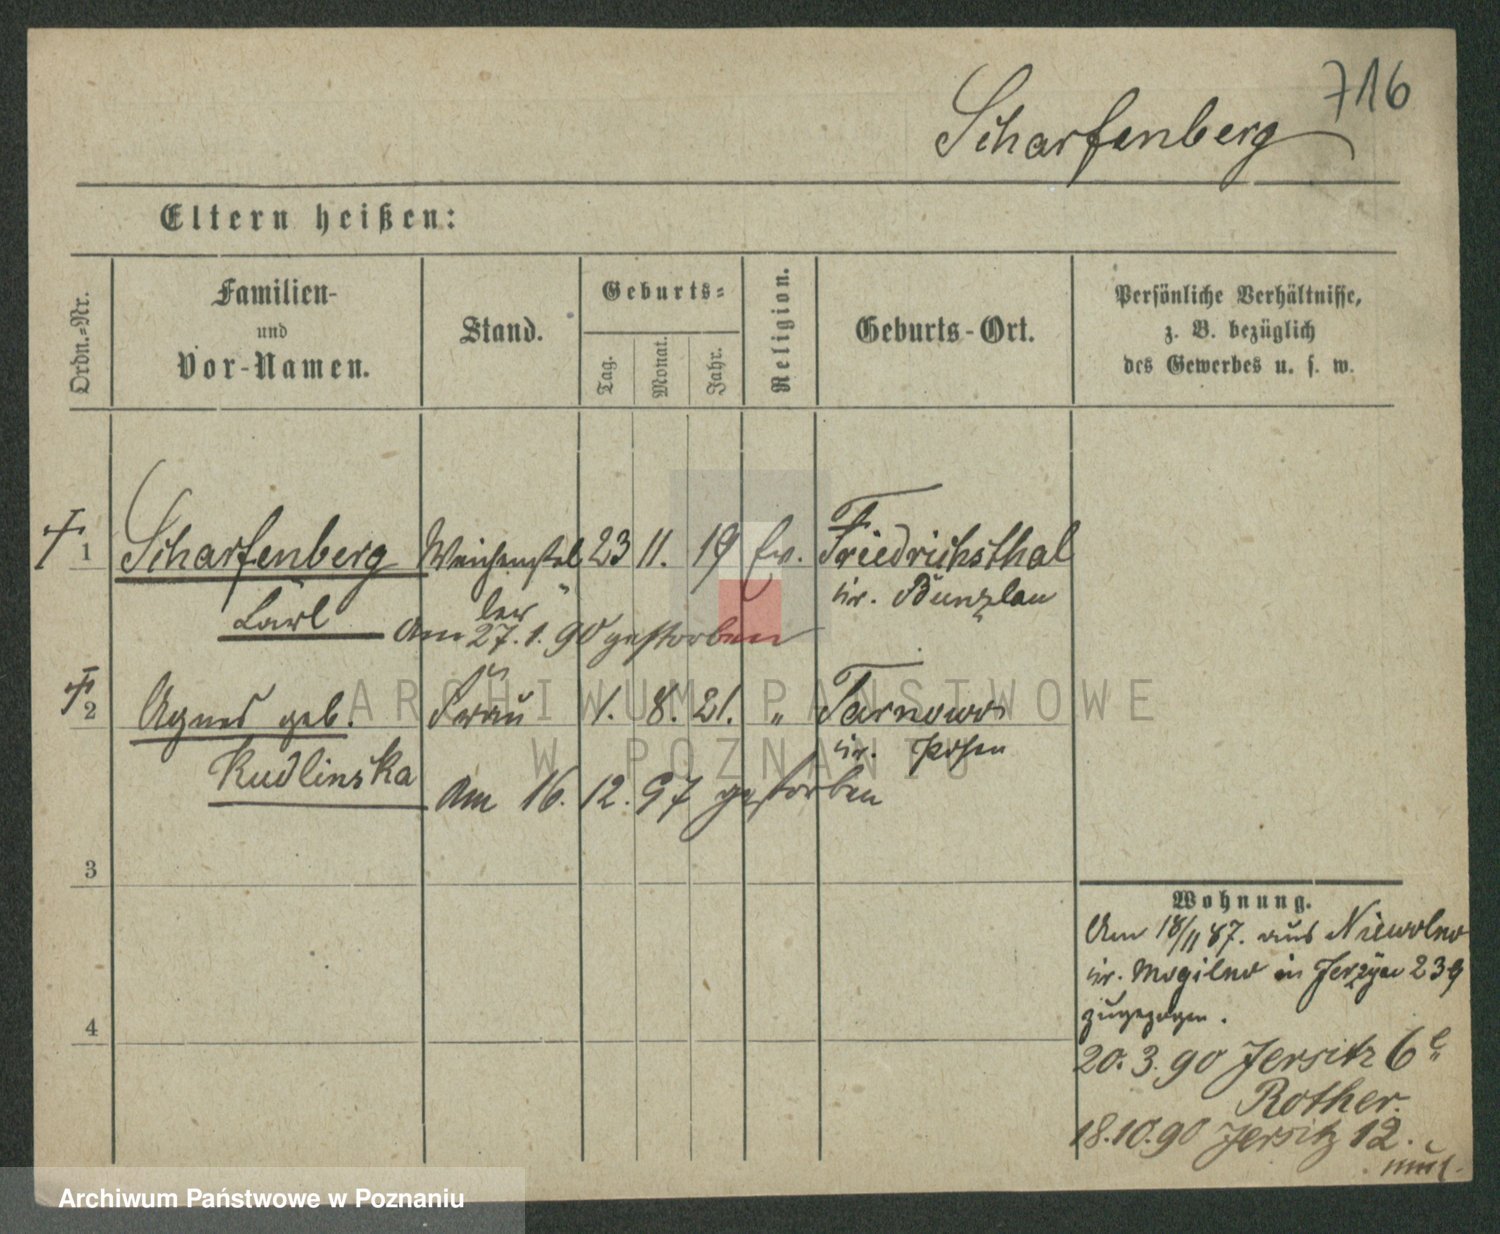 716
Scharfenberg
Eltern heißen:
Ordn.-Nr.
Familien-
und
Vor-Namen.
Stand.
Geburts-
Tag.
Monat.
Jahr.
Religion.
Geburts-Ort.
Persönliche Verhältnisse,
z. B. bezüglich
des Gewerbes u. s. w.
1 Scharfenberg Weichenstel 23 11. 19 ev. Friedrichsthal
ler
Kr. Bunzlau
Carl
Am 27.1.90 gestorben
2 Agnes geb. Frau 1. 8. 21. " Tarnowo
Kudlinska
Kr. Posen
Am 16. 12. 97 gestorben
3
4
Wohnung.
Am 18/11 87. aus Niewolno
Kr. Mogilno in Jerzyce 239
zugezogen.
20.3.90 Jersitz 6
Rother.
18.10.90 Jersitz 12.
ARCHIWUM PAŃSTWOWE
W POZNANIU
Archiwum Państwowe w Poznaniu